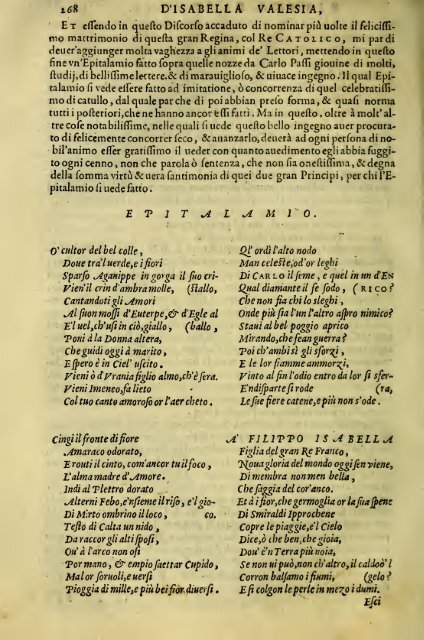 168 D'ISABELLA VALESIA,
ET essendo in questo Discorso accaduto di nominar più uolte il felicissi-
mo matrimonio di questa gran Regina, col Re CATOLICO, mi par di
deuer'aggiunger molta vaghezza a gli animi de' Lettori, mettendo in questo
fine vn'Epitalamio fatto sopra quelle nozze da Carlo Passi giouine di molti,
studij, di bellissime lettere, & di marauiglioso, & uiuace ingegno. Il qual Epi-
talamio si vede essere fatto ad imitatione, ò concorrenza di quel celebratissi-
mo di catullo, dal quale par che di poi abbian preso forma, & quasi norma
tutti i posteriori, che ne hanno ancor essi fatti. Ma in questo, oltre à molt'al-
tre cose notabilissime, nelle quali si uede questo bello ingegno auer procura-
to di felicemente concorrer seco, & auanzarlo, deuerà ad ogni persona di no-
bil'animo esser gratissimo il ueder con quanto auedimento egli abbia fuggi-
to ogni cenno, non che parola ò sentenza, che non sia onestissima, & degna
della somma virtù & uera santimonia di quei due gran Principi, per chi l'E-
pitalamio si uede fatto.
EPITALAMIO.
O' cultor del bel colle,
Doue tra'l uerde, e i fiori
Sparso Aganippe in gorga il suo cri-
Vien'il crin d'ambra molle, (stallo,
Cantandoti gli Amori
Al suon mossi d'Euterpe, & d'Egle al
E'l uel, ch'usi in ciò, giallo, (ballo,
Poni à la Donna altera,
Che guidi oggi à marito,
Espero è in Ciel' uscito.
Vieni ò d'Vrania figlio almo, ch'è sera.
Vieni Imeneo, fa lieto
Col tuo canto amoroso or l'aer cheto.
Cingi il fronte di fiore
Amaraco odorato,
E routi il cinto, com'ancor tu il foco,
L'alma madre d'Amore.
Indi al Plettro dorato
Alterni Febo, e'nsieme il riso, e'l gio-
Di Mirto ombrino il loco, co.
Testo di Calta un nido,
Da raccor gli alti sposi,
Qu' à l'arco non osi
Por mano, & empio saettar Cupido,
Mal or soruoli, e uersi
Pioggia di mille, e più bei fior diuersi.
Ql' ordì l'alto nodo
Man celeste, od'or leghi
Di CARLO il seme, e quel in un d'EN
Qual diamante il fe sodo, (RICO?
Che non fia chi lo sleghi,
Onde più sia l'un l'altro aspro nimico?
Staui al bel poggio aprico
Mirando, che fean guerra?
Poi ch'ambi sì gli sforzi,
E le lor fiamme ammorzi,
Vinto al fin l'odio entro da lor si sfer-
E'ndisparte si rode (ra,
Le sue fiere catene, e più non s'ode.
A' FILIPPO ISABELLA
Figlia del gran Re Franco,
Noua gloria del mondo oggi sen viene,
Di membra non men bella,
Che saggia del cor'anco.
Et à i fior, che germoglia or la sua spene
Di Smiraldi Ipprochene
Copre le piaggie, e'l Cielo
Dice, ò che ben, che gioia,
Dou' è'n Terra più noia,
Se non ui può, non ch'altro, il caldo ò'l
Corron balsamo i fiumi, (gelo?
E si colgon le perle in mezo i dumi.
Esci